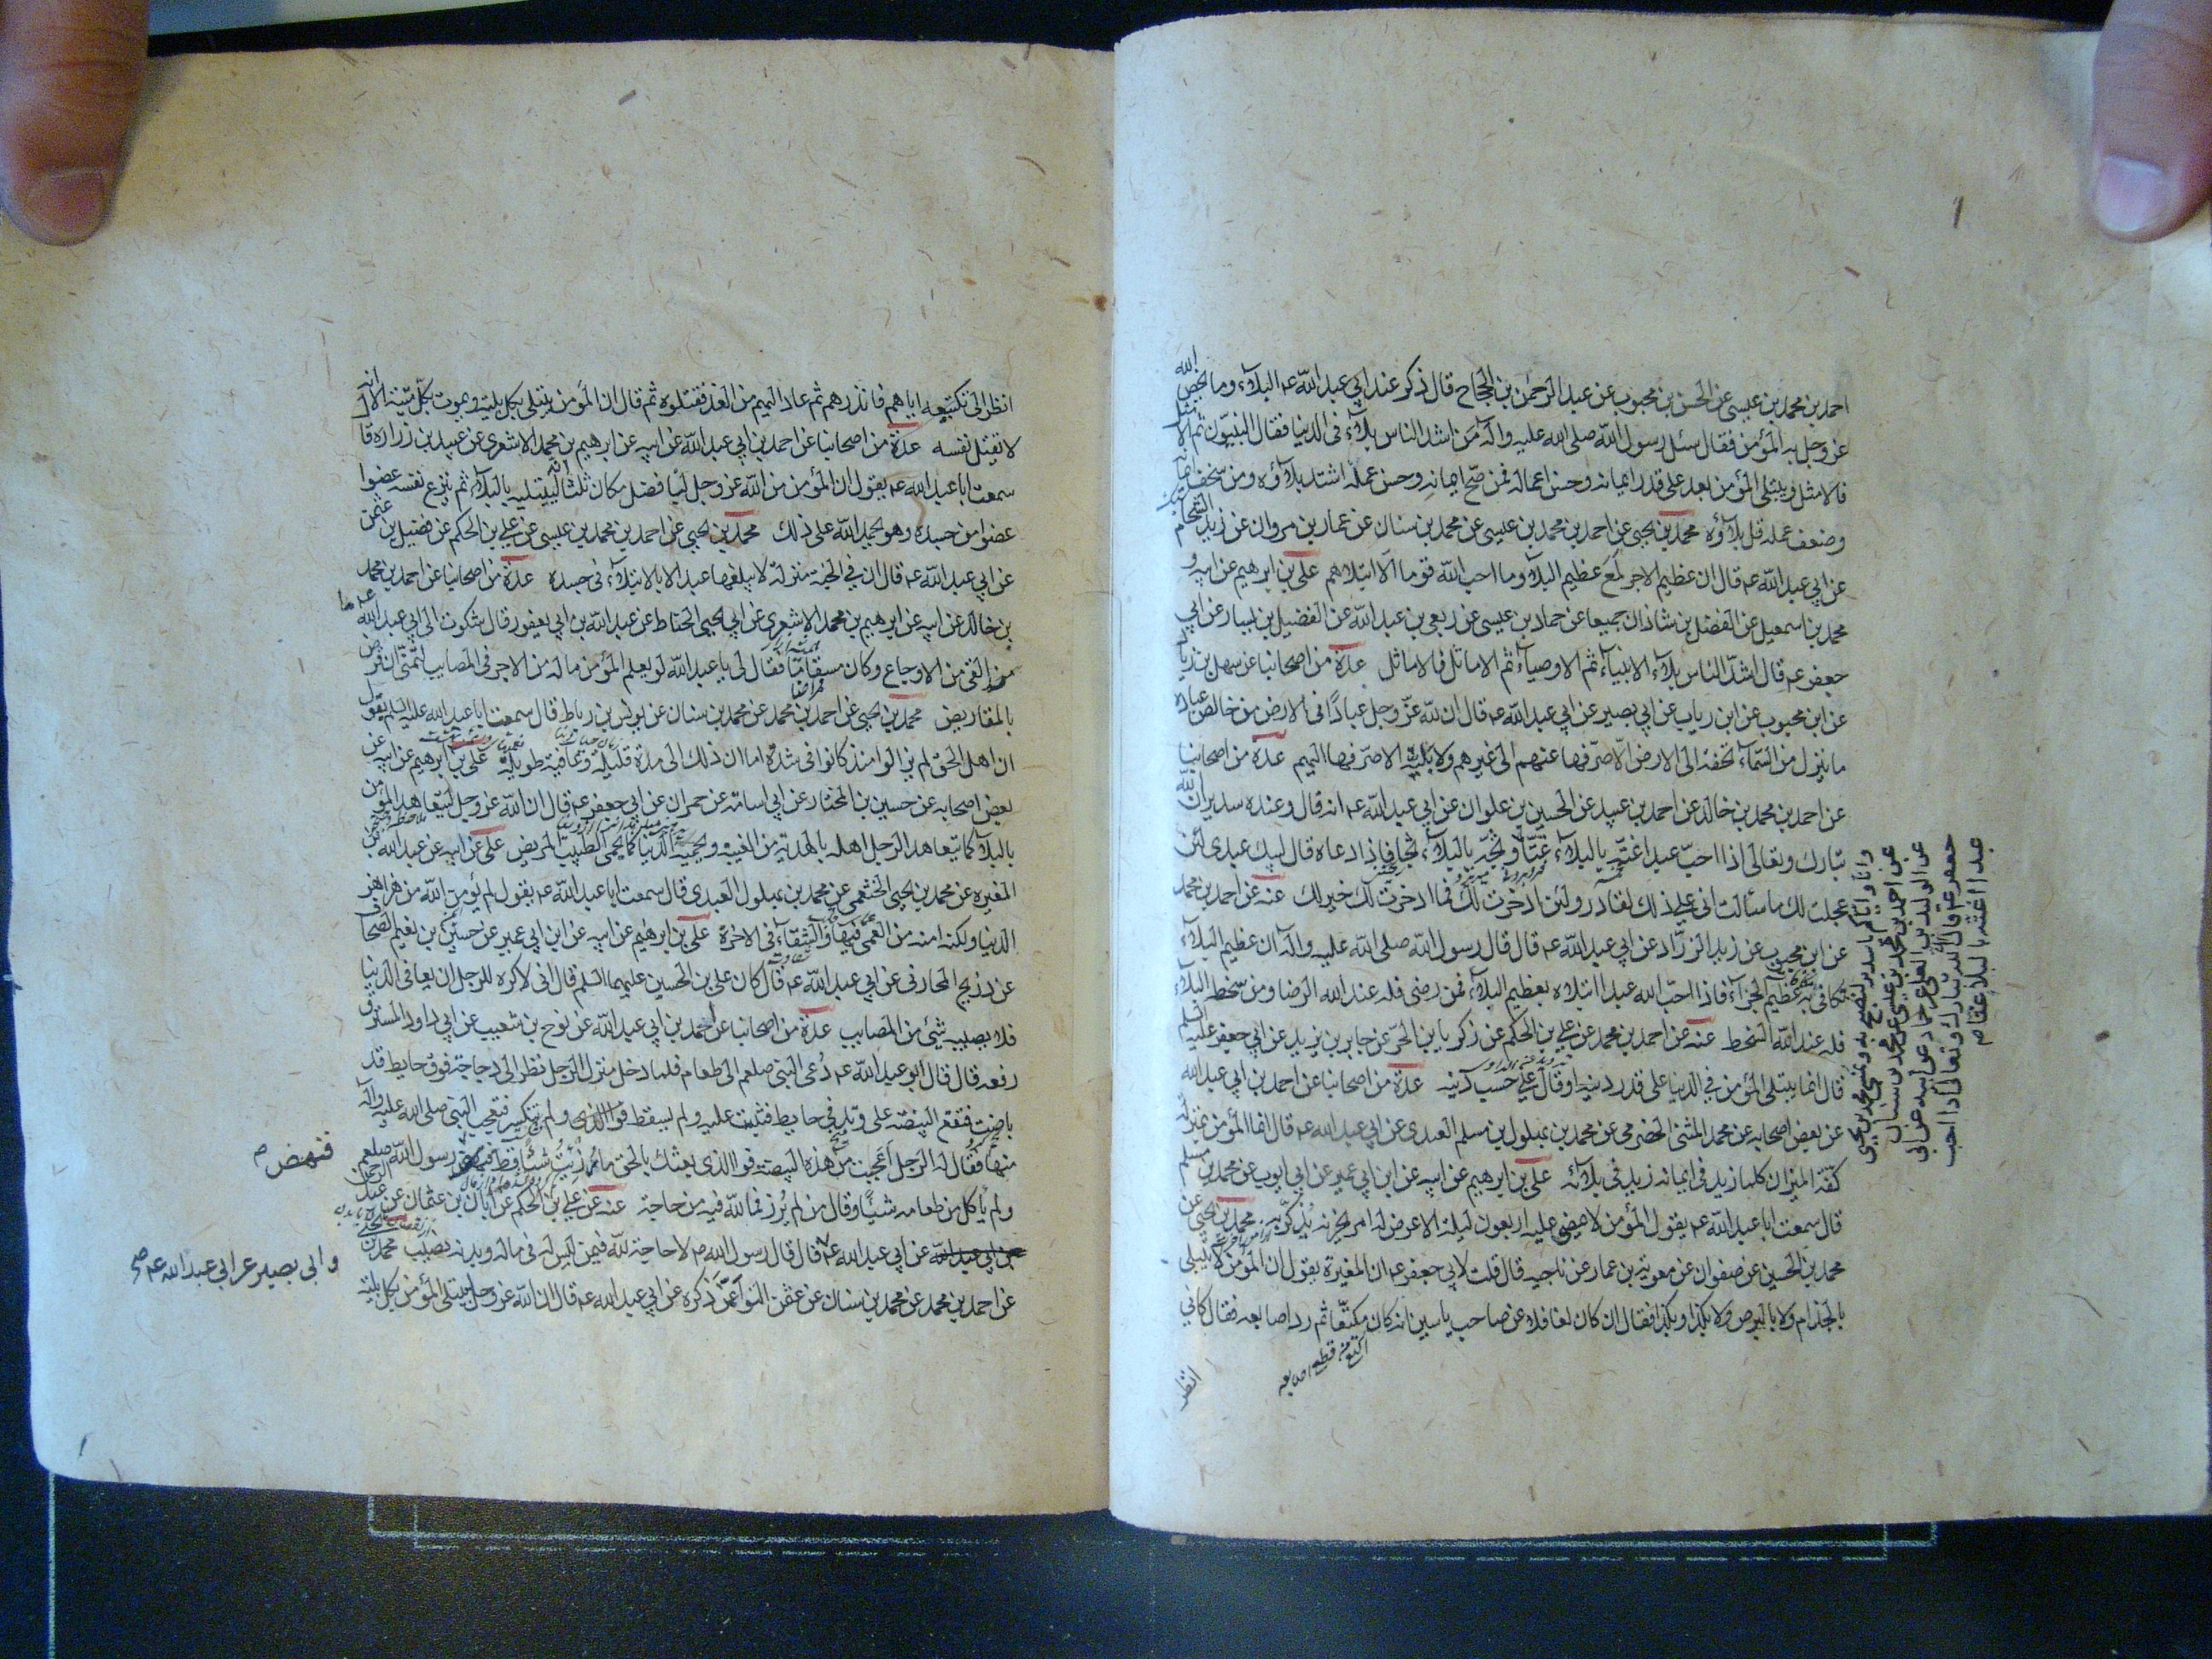 احمد بن محمد بن عيسى عن الحسن بن محبوب عن عبد الرحمن بن الحجاج قال ذكر عند ابي عبد الله عه البلاء وما يخص الله
عز وجل به المؤمن فقال سئل رسول الله صلى الله عليه واله من اشد الناس بلاء في الدنيا فقال النبيون ثم الامثل
فالامثل ويبتلى المؤمن بعد على قدر ايمانه وحسن اعماله فمن صح ايمانه وحسن عمله اشتد بلاؤه ومن سخف ايمانه
وضعف عمله قل بلاؤه محمد بن يحيى عن احمد بن محمد بن عيسى عن محمد بن سنان عن عمار بن مروان عن زيد الشحام
عن ابي عبد الله عه قال ان عظيم الاجر لمع عظيم البلاء وما احب الله قوما الا ابتلاهم علي بن ابرهيم عن ابيه و
محمد بن اسمعيل عن الفضل بن شاذان جميعا عن حماد بن عيسى عن ربعي بن عبد الله عن الفضيل بن يسار عن ابي
جعفر عه قال اشد الناس بلاء الانبياء ثم الاوصياء ثم الاماثل فالاماثل عدة من اصحابنا عن سهل بن زياد
عن ابن محبوب عن ابن رياب عن ابي بصير عن ابي عبد الله عه قال ان لله عز وجل عبادا في الارض من خالص عباده
ما ينزل من السماء تحفة الى الارض الا صرفها عنهم الى غيرهم ولا بلية الا صرفها اليهم عدة من اصحابنا
عن احمد بن محمد بن خالد عن احمد بن عبيد عن الحسين بن علوان عن ابي عبد الله عه انه قال وعنده سدير ان الله
تبارك وتعالى اذا احب عبدا غته بالبلاء غتا وثجه بالبلاء ثجا فاذا دعاه قال لبيك عبدي لئن
عجلت لك ما سئالت اني على ذلك لقادر ولئن ادخرت لك فما ادخرت لك خير لك عنه عن احمد بن محمد
عن ابن محبوب عن زيد الزراد عن ابي عبد الله عه قال قال رسول الله صلى الله عليه واله ان عظيم البلاء
يكافى به عظيم الجزاء فاذا احب الله عبدا ابتلاه بعظيم البلاء فمن رضي فله عند الله الرضا ومن سخط البلاء
فله عند الله السخط عنه عن احمد بن محمد عن علي بن الحكم عن زكريا بن الحر عن جابر بن يزيد عن ابي جعفر عليه السلم
قال انما يبتلى المؤمن في الدنيا على قدر دينه او قال على حسب دينه عدة من اصحابنا عن احمد بن ابي عبد الله
عن بعض اصحابه عن محمد المثنى الحضرمي عن محمد بن بهلول بن مسلم العبدي عن ابي عبد الله عه قال انما المؤمن بمنزلة
كفة الميزان كلما زيد في ايمانه زيد في بلائه علي بن ابرهيم عن ابيه عن ابن ابي عمير عن ابي ايوب عن محمد بن مسلم
قال سمعت ابا عبد الله عه يقول المؤمن لا يمضي عليه اربعون ليلة الا عرض له امر يحزنه يذكر به محمد بن يحيى عن
محمد بن الحسين عن صفوان عن معوية بن عمار عن ناجيه قال قلت لابي جعفر عه ان المغيرة يقول ان المؤمن لا يبتلى
بالجذام ولا بالبرص ولا بكذا وبكذا فقال ان كان لغافلا عن صاحب ياسين انه كان مكتعا ثم رد اصابعه فقال كاني
انظر
وانا واياكم يا سدير لنصبح به ونمسي محمد بن يحيى
عن احمد بن محمد بن عيسى عن محمد بن سنان
عن الوليد بن العلا عن حماد عن ابيه عن ابي
جعفر عه قال ان الله تبارك وتعالى اذا احب
عبدا غته بالبلاء غتا
انظر الى تكنيعه اياهم فانذرهم ثم عاد اليهم من الغد فقتلوه ثم قال ان المؤمن يبتلى بكل بلية ويموت بكل ميتة الا انه
لا يقتل نفسه عدة من اصحابنا عن احمد بن ابي عبد الله عن ابيه عن ابرهيم بن محمد الاشعري عن عبيد بن زرارة قا
سمعت ابا عبد الله عه يقول ان المؤمن من الله عز وجل لبافضل مكان ثلثا انه ليبتليه بالبلاء ثم ينزع نفسه عضوا
عضوا من جسده وهو يحمد الله على ذلك محمد بن يحيى عن احمد بن محمد بن عيسى عن علي بن الحكم عن فضيل بن عثمن
عن ابي عبد الله عه قال ان في الجنة منزلة لا يبلغها عبد الا بالابتلاء في جسده عدة من اصحابنا عن احمد بن محمد
بن خالد عن ابيه عن ابرهيم بن محمد الاشعري عن ابي يحيى الحناط عن عبد الله بن ابي يعفور قال شكوت الى ابي عبد الله عه ما
القى من الاوجاع وكان مسقاما فقال لي يا عبد الله لو يعلم المؤمن ما له من الاجر في المصايب لتمنى ان قرض
بالمقاريض محمد بن يحيى عن احمد بن محمد عن محمد بن سنان عن يونس بن رباط قال سمعت ابا عبد الله عليه السلم يقول
ان اهل الحق لم يزالوا منذ كانوا في شدة اما ان ذلك الى مدة قليلة وعافية طويلة علي بن ابرهيم عن ابيه عن
بعض اصحابه عن حسين بن المختار عن ابي اسامة عن حمران عن ابي جعفر عه قال ان الله عز وجل ليتعاهد المؤمن
بالبلاء كما يتعاهد الرجل اهله بالهدية من الغيبة ويحميه الدنيا كما يحمي الطبيب المريض علي عن ابيه عن عبد الله بن
المغيره عن محمد بن يحيى الخثعمي عن محمد بن بهلول العبدي قال سمعت ابا عبد الله عه يقول لم يؤمن الله من هزاهز
الدنيا ولكنه امنه من العمى فيها والشقاء في الاخرة علي بن ابرهيم عن ابيه عن ابن ابي عمير عن حسين بن نعيم الصحاف
عن ذريح المحاربي عن ابي عبد الله عه قال كان علي بن الحسين عليهما السلم قال اني لاكره للرجل ان يعافى في الدنيا
فلا يصيبه شيئ من المصايب عدة من اصحابنا عن احمد بن ابي عبد الله عن نوح بن شعيب عن ابي داود المسترق
رفعه قال قال ابو عبد الله عه دعي النبي صلعم الى طعام فلما دخل منزل الرجل نظر الى دجاجة فوق حايط قد
باضت فتقع البيضة على وتد في حايط فثبتت عليه ولم يسقط ولم تنكسر فتعجب النبي صلى الله عليه واله
منها فقال له الرجل اعجبت من هذه البيضة فوالذي بعثك بالحق ما رزئت شيئا قط رسول الله صلعم
فنهض
ولم يأكل من طعامه شيئا وقال من لم يرزأ فما لله فيه من حاجة عنه عن علي بن الحكم عن ابان بن عثمان عن عبد الرحمن
عن ابي عبد الله عه قال قال رسول الله لا حاجة لله فيمن ليس له في ماله وبدنه نصيب محمد بن
وابي بصير عن ابي عبد الله عه
عن احمد بن محمد عن محمد بن سنان عن عثمن النوا عمن ذكره عن ابي عبد الله عه قال ان الله عز وجل يبتلي المؤمن بكل بلية